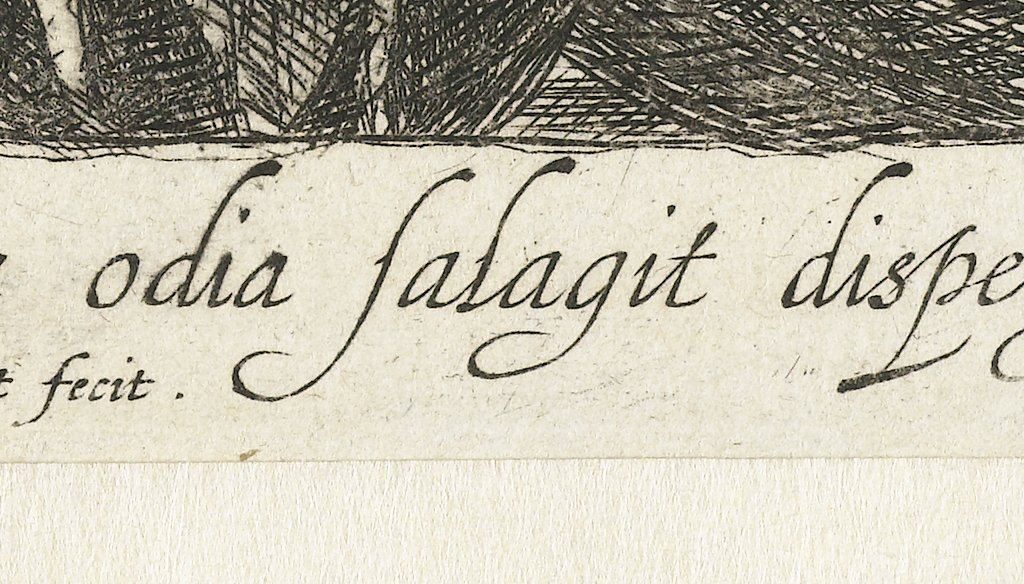 odia ſatagit dispe
t fecit.